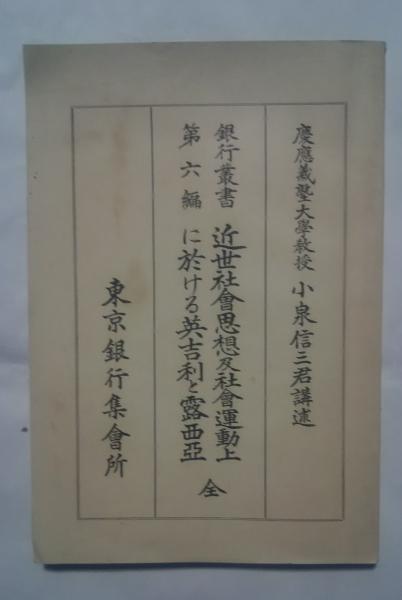 慶應義塾大學教授 小泉信三君講述
銀行叢書
第六編
近世社會思想及社會運動上
に於ける英吉利と露西亞
全
東京銀行集會所